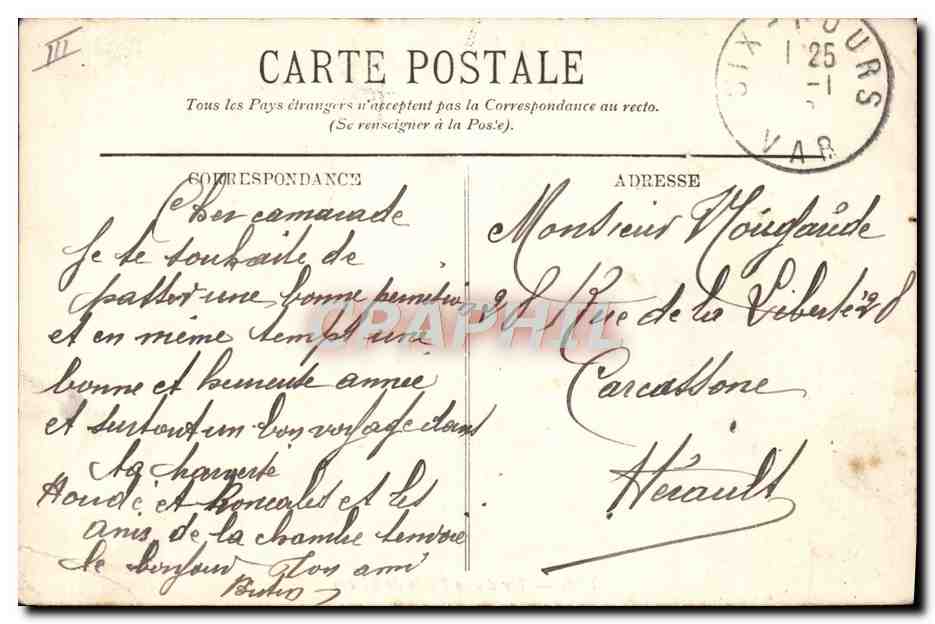 III
CARTE POSTALE
Tous les Pays étrangers n'acceptent pas la Correspondance au recto.
(Se renseigner à la Poste).
SIX-FOURS
1 25
-1
VAR
CORRESPONDANCE
Cher camarade
Je te souhaite de
passer une bonne
et en même temps une
bonne et heureuse année
et surtout un bon voyage dans
ta
et Roncales et les
amis de la chambre t'envoie
le bonjour Ton ami
ADRESSE
Monsieur Nougaude
28 Rue de la Liberté 28
Carcassone
Hérault
CPAPHIL